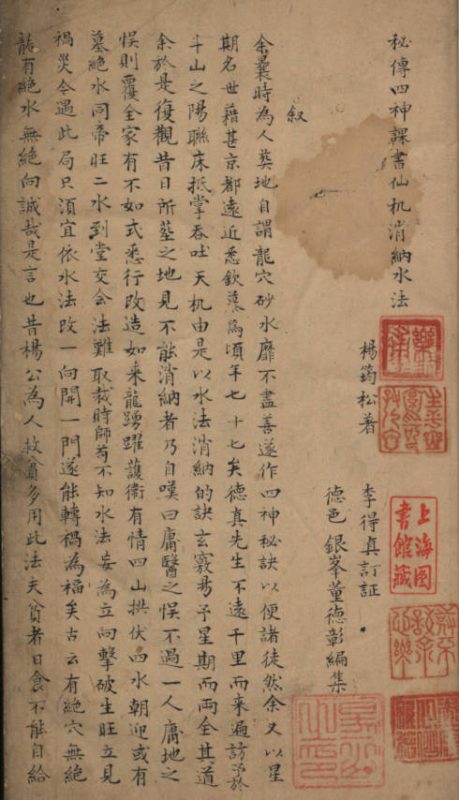 秘傳四神課書仙机消納水法
楊筠松著
李得真訂証
德邑銀峯董德彰編集
叙
余曩時為人葬地自謂龍穴砂水靡不盡善遂作四神秘訣以便諸徒然余又以星
期名世藉甚京都遠近悉欽慕焉頃年七十七矣德真先生不遠千里而来遍訪予於
斗山之陽聯床抵掌吞吐天机由是以水法消納的訣玄竅易予星期而両全其道
余於是復觀昔日所塟之地見不能消納者乃自嘆曰庸醫之悮不過一人庸地之
悮則覆全家有不如式悉行改造如来龍踴躍護衛有情四山拱伏四水朝迎或有
墓絶水同帝旺二水到堂交会法難取裁時師茍不知水法妄為立向擊破生旺立見
禍災今遇此局只湏宜依水法改一向開一門遂能轉禍為福矣古云有絶穴無絶
龍有絶水無絶向誠哉是言也昔楊公為人救貧多用此法夫贫者日食不能自給
上海圖
書館藏